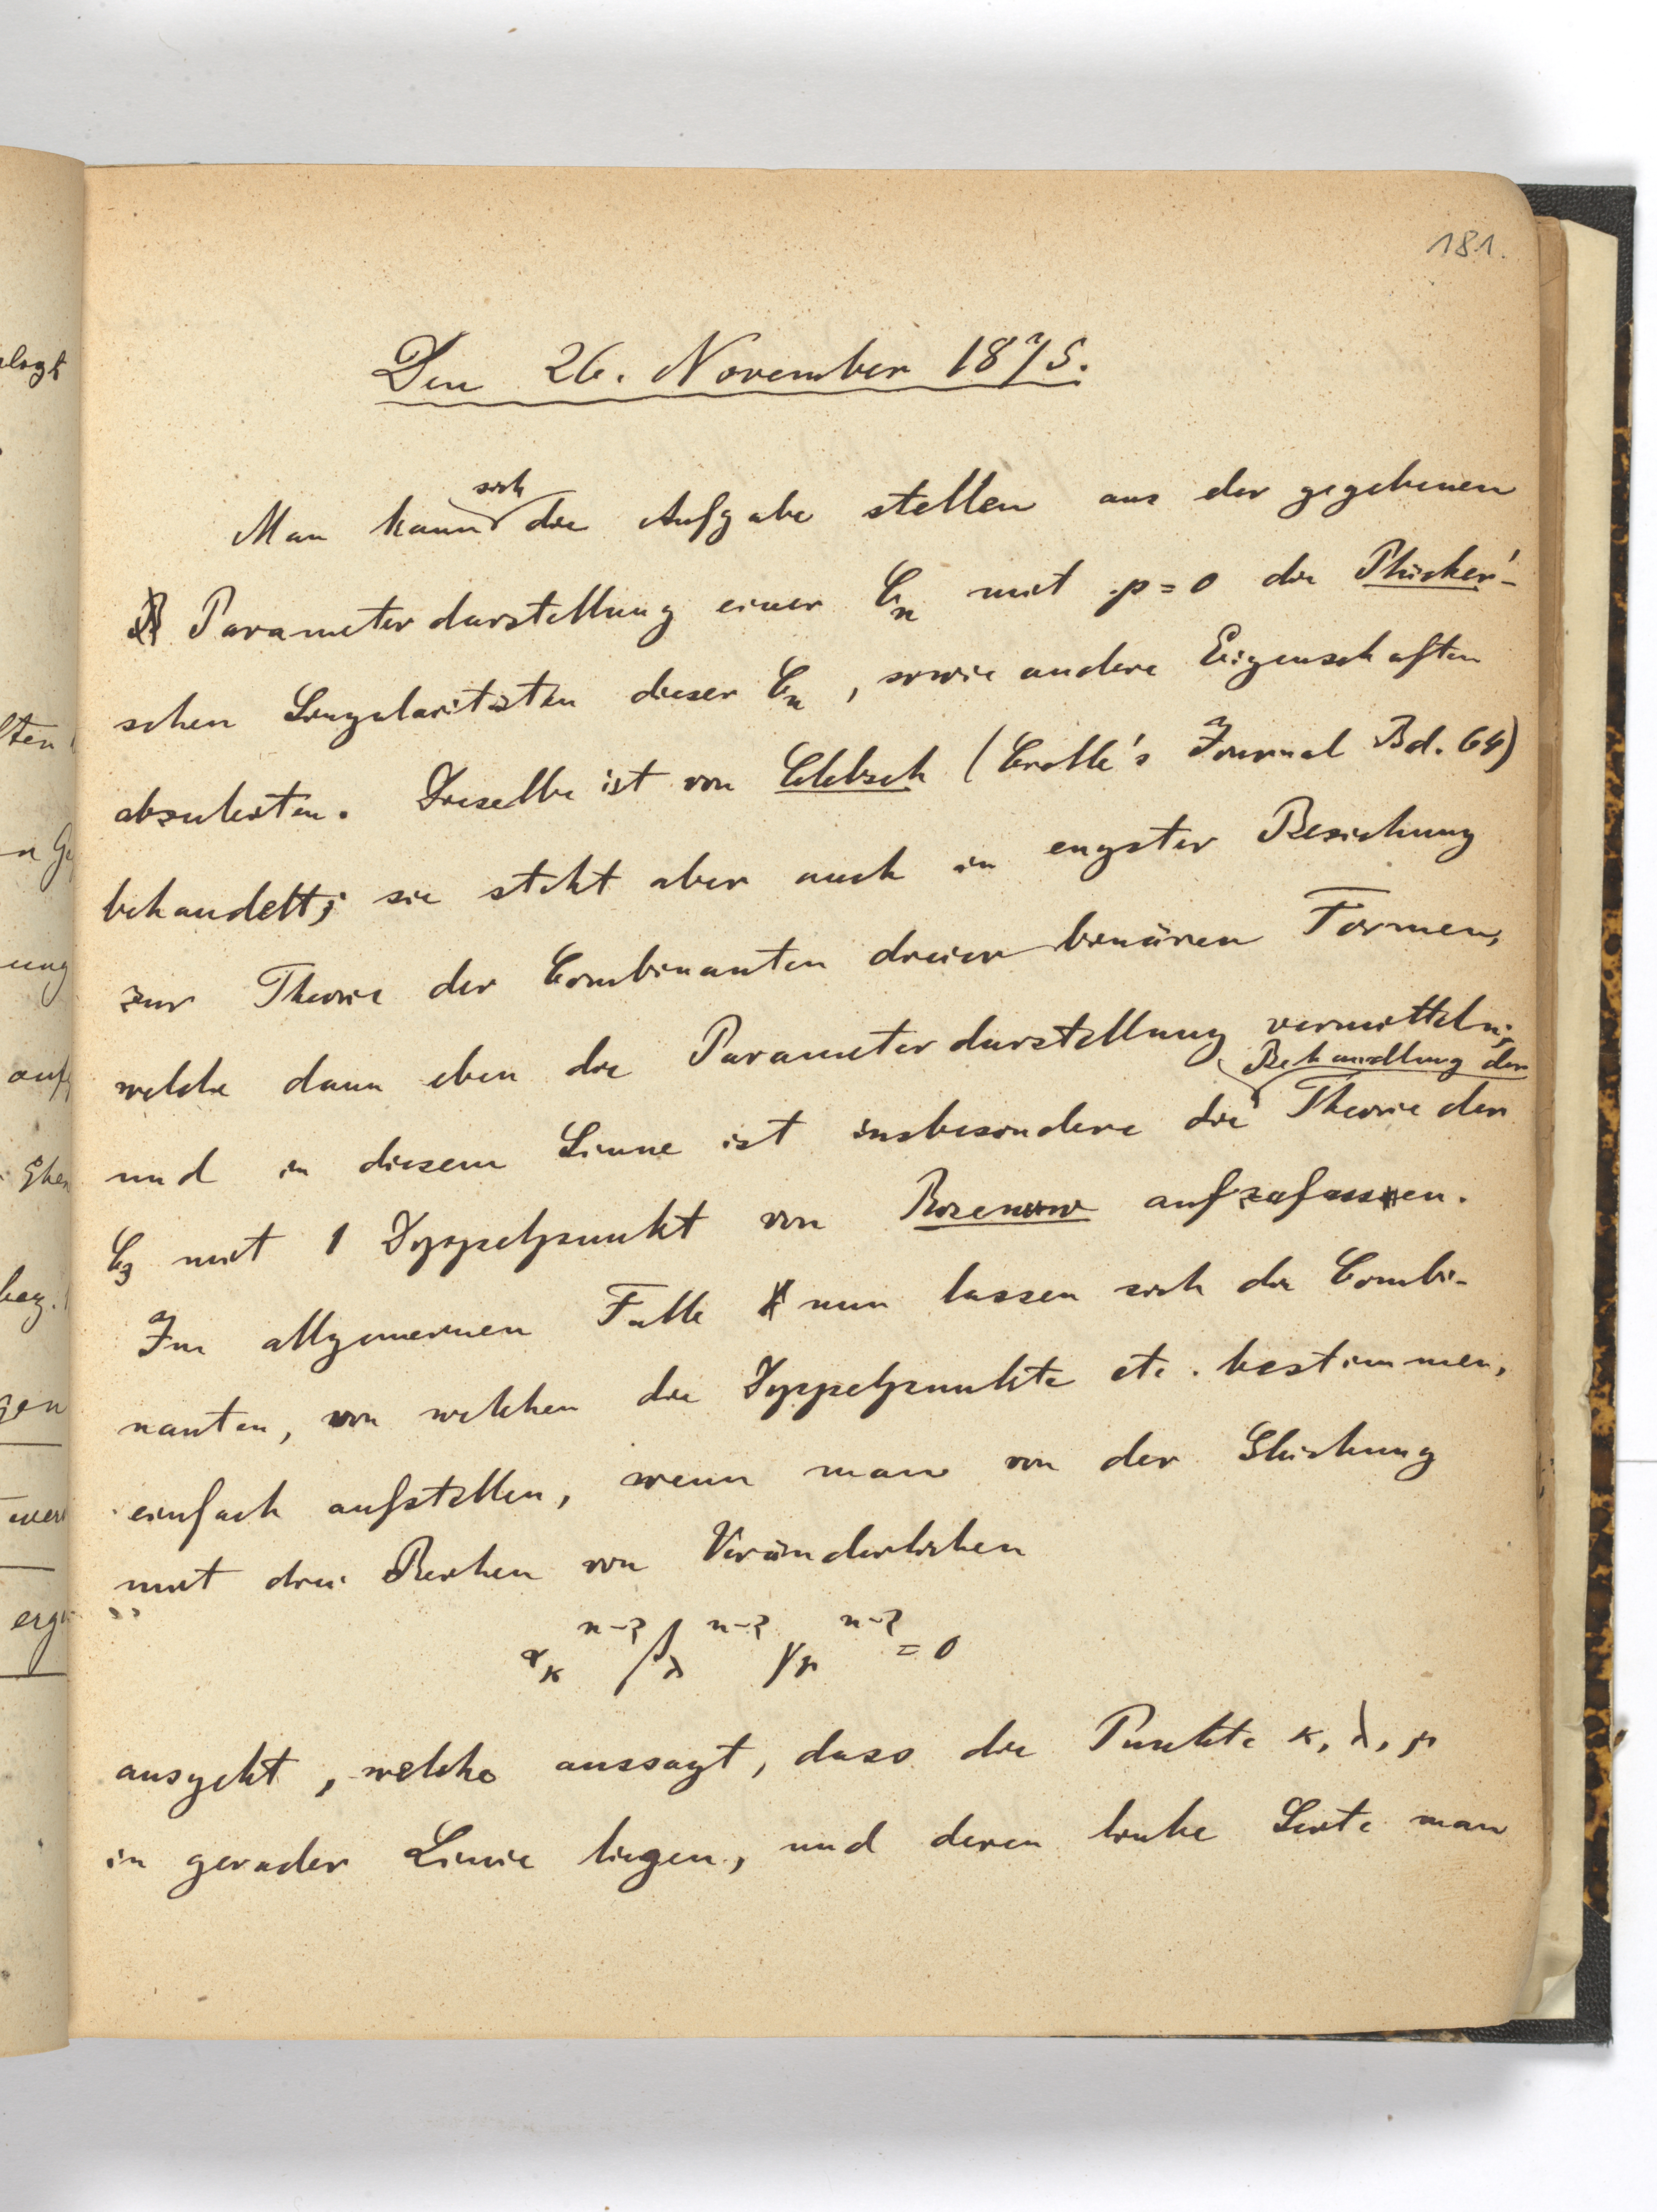 181.
Den 26. November 1875.
Man kann sich die Aufgabe stellen aus der gegebenen
Parameterdarstellung einer Cn mit p=0 die Plücker'-
schen Singularitäten dieser Cn, sowie andere Eigenschaften
abzuleiten. Dieselbe ist von Clebsch (Crelle's Journal Bd. 64)
behandelt; sie steht aber auch in engster Beziehung
zur Theorie der Combinanten dreier binären Formen,
welche dann eben die Parameterdarstellung vermitteln;
und in diesem Sinne ist insbesondere die Behandlung der Theorie der
C3 mit 1 Doppelpunkt von Rosenow aufzufassen.
Im allgemeinen Falle nun lassen sich die Combi-
nanten, von welchen die Doppelpunkte etc. bestimmen,
einfach aufstellen, wenn man von der Gleichung
mit drei Reihen von Veränderlichen
ακ^n-2 βλ^n-2 γμ^n-2 = 0
ausgeht, welche aussagt, dass die Punkte κ, λ, μ
in gerader Linie liegen, und deren linke Seite man